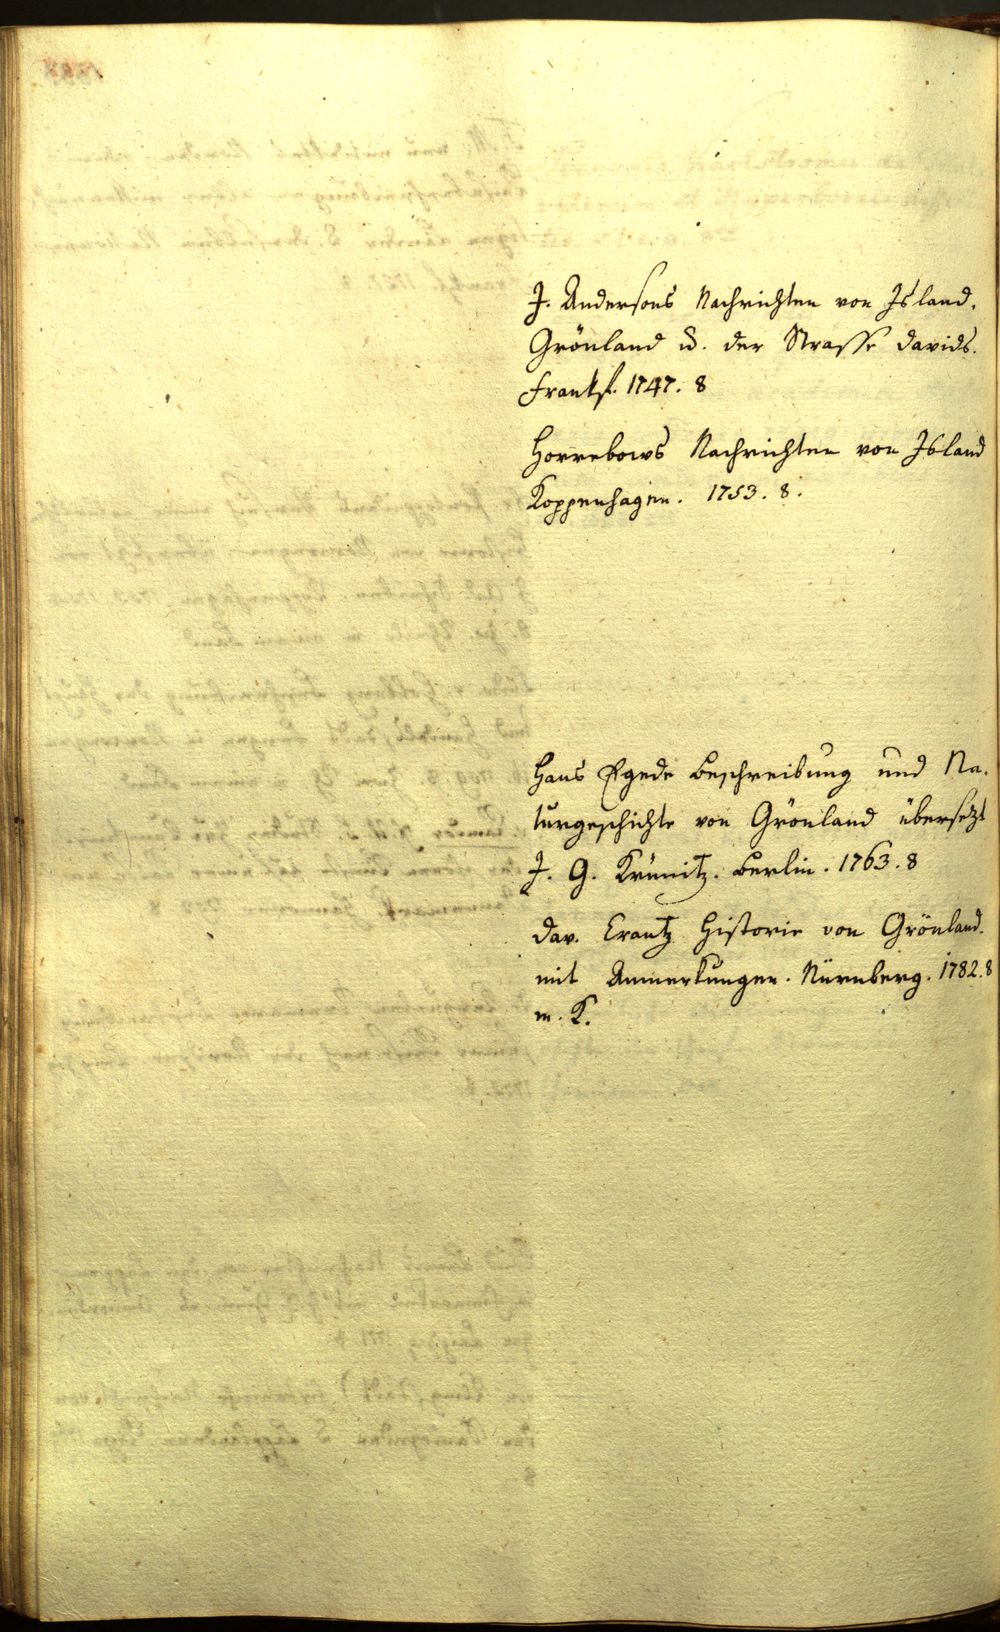 J. Andersons Nachrichten von Island,
Grönland u. der Strasse Davids.
Frankf. 1747. 8
Horrebows Nachrichten von Island
Koppenhagen. 1753. 8.
Hans Egede Beschreibung und Na-
turgeschichte von Grönland übersetzt
J. G. Krünitz. Berlin. 1763. 8
Dav. Crantz Historie von Grönland.
mit Anmerkungen. Nürnberg. 1782. 8
m. K.